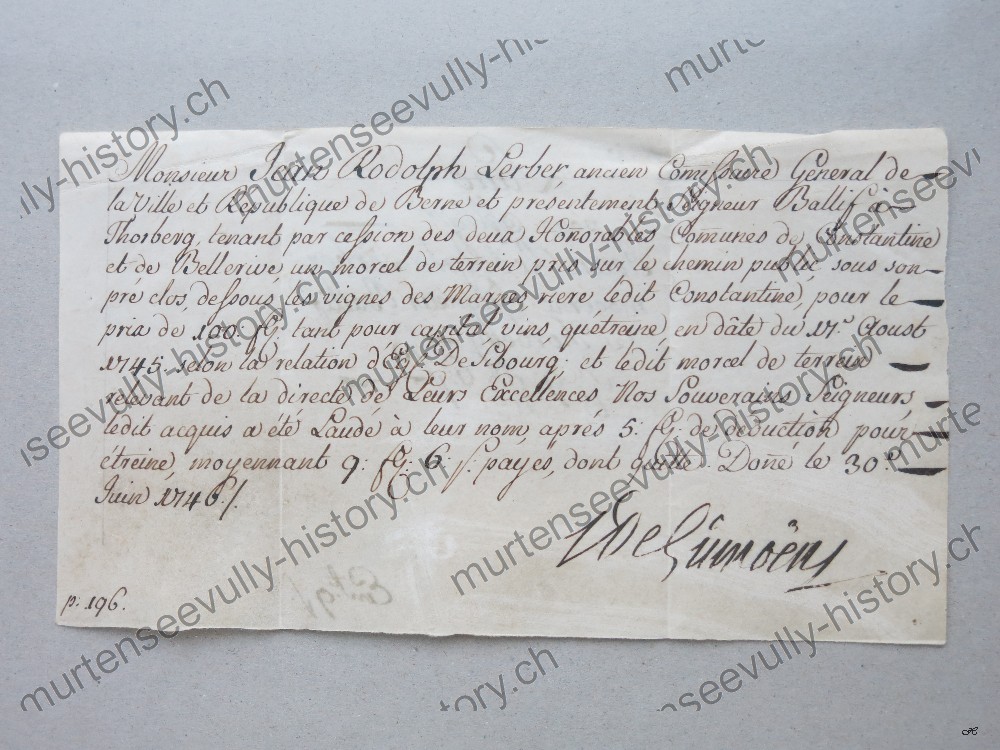 Monsieur Jean Rodolph Lerber, ancien Comissaire Général de
la Ville et République de Berne et presentement Seigneur Ballif à
Thorberg, tenant par cession des deux Honorables Comunes de Constantine
et de Bellerive un morcel de terrein pris sur le chemin public sous son
pré clos dessous les vignes des Marnes riere ledit Constantine, pour le
prix de 100: fl: tant pour capital, vins, qu'étreine, en dâte du 17.e Aoust
1745, selon la relation d'Eg. De Sibourg; et ledit morcel de terrein
relevant de la directe de Leurs Excellences Nos Souverains Seigneurs
ledit acquis a été Laudé à leur nom, aprés 5: fl: de deduction pour
étreine, moyennant 9: fl: 6: s. payés, dont quitte. Doñé le 30.e
Juin 1746./.
DeGuimöens
p: 196.
murtenseevully-history.ch
murtenseevully-history.ch
murtenseevully-history.ch
murtenseevully-history.ch
murtenseevully-history.ch